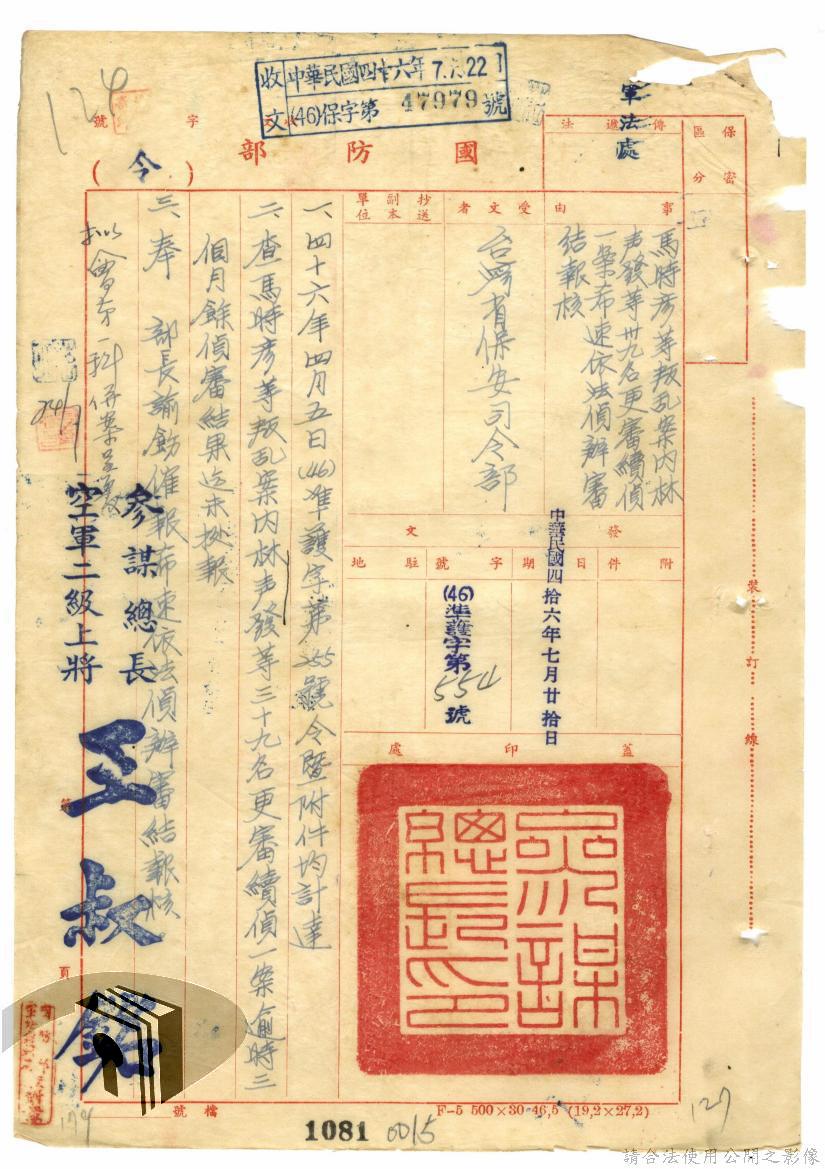 收文
中華民國四十六年7月22日
(46)保字第47979號
124
字 號
國防部
(令)
軍法處
傳遞法
保密
區分
事由
馬時彥等叛乱案內林
声發等卅九名更審續偵
一案希速依法偵辦審
結報核
受文者
台灣省保安司令部
抄送
副本
單位
發文
附件
日期
字號
駐地
中華民國四拾六年七月廿拾日
(46)準護字第554號
蓋印處
參謀總長印
一、四十六年四月五日(46)準護字第255號令暨附件均計達
二、查馬時彥等叛乱案內林声發等三十九名更審續偵一案逾時三
個月餘偵審結果迄未據報
三、奉 部長諭飭催報希速依法偵辦審結報核
參謀總長
空軍二級上將
王叔銘
擬會第一科併案
24/7
裝訂線
第
頁
檔號
F-5 500×30-46,5 (19,2×27,2)
1081
0015
127
174
請合法使用公開之影像